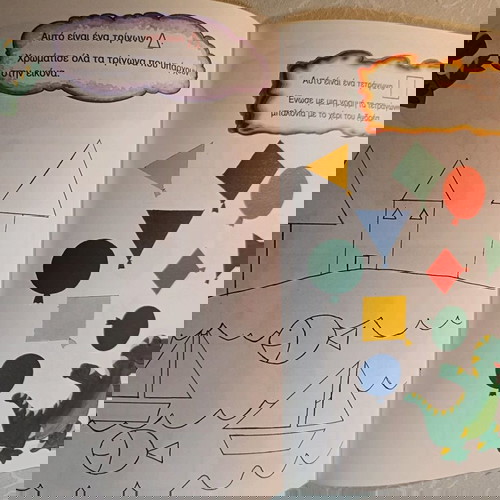 Αυτό είναι ένα τρίγωνο
Χρωμάτισε όλα τα τρίγωνα που υπάρχουν
στην εικόνα.
Αυτό είναι ένα τετράγωνο
Ένωσε με μια γραμμή τα τετράγωνα
μπαλόνια με το χέρι του